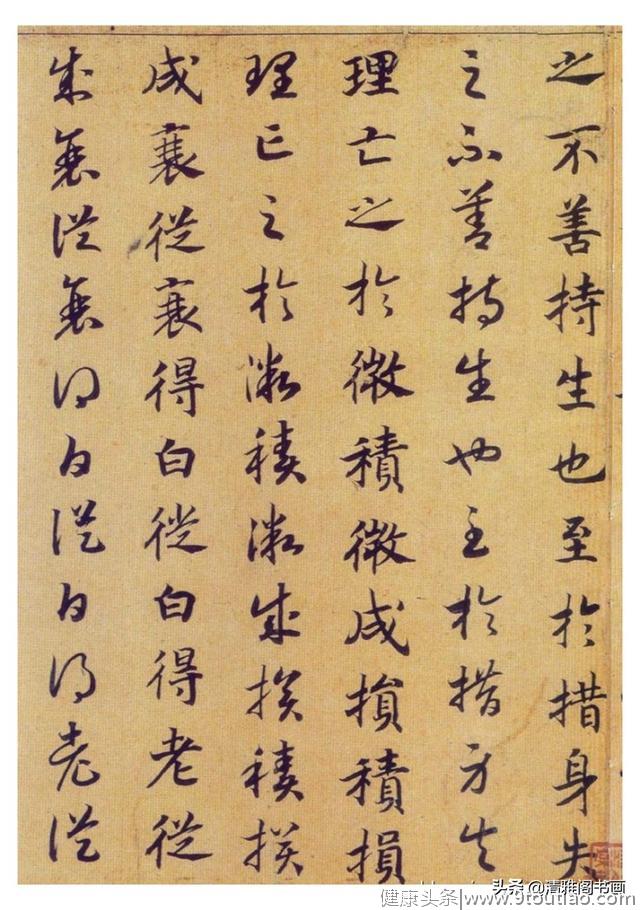 之不善持生也至於措身失
之不善持生也至於措身失
理亡之於微積微成損積損
理亡之於微積微成損積損
成衰從衰得白從白得老從
成衰從衰得白從白得老從
头条@清雅阁书画
健康头条|www.9toutiao.com